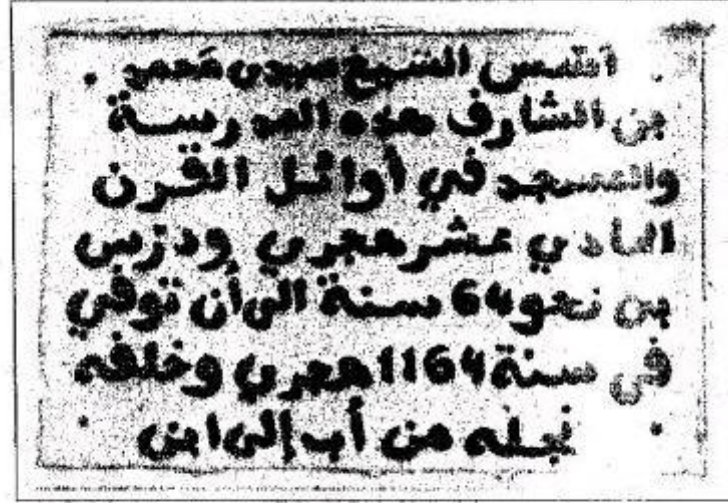 . اسس الشيخ سيدي محمد .
بن الشارف هذه المدرسة
والمسجد في أوائل القرن
الحادي عشر هجري ودرس
بن نحو 64 سنة الى أن توفي
في سنة 1164 هجري وخلفه
. نجله من أب إلى ابن .